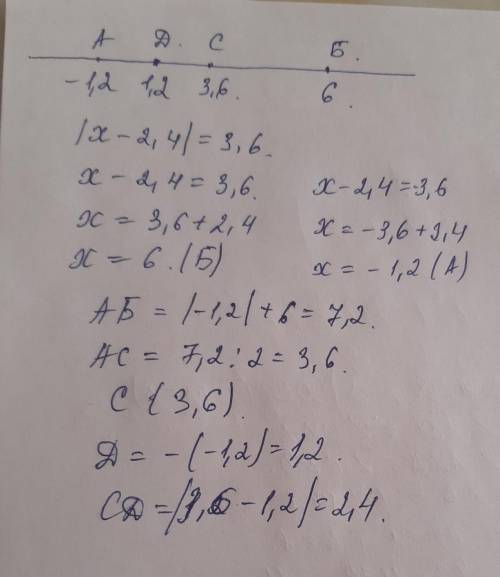 А Д. С Б.
-1,2 1,2 3,6. 6.
|х - 2,4| = 3,6.
х - 2,4 = 3,6. х - 2,4 = -3,6
х = 3,6 + 2,4 х = -3,6 + 2,4
х = 6. (Б) х = -1,2 (А)
АБ = |-1,2| + 6 = 7,2.
АС = 7,2 : 2 = 3,6.
С (3,6).
Д = -(-1,2) = 1,2.
СД = |3,6 - 1,2| = 2,4.